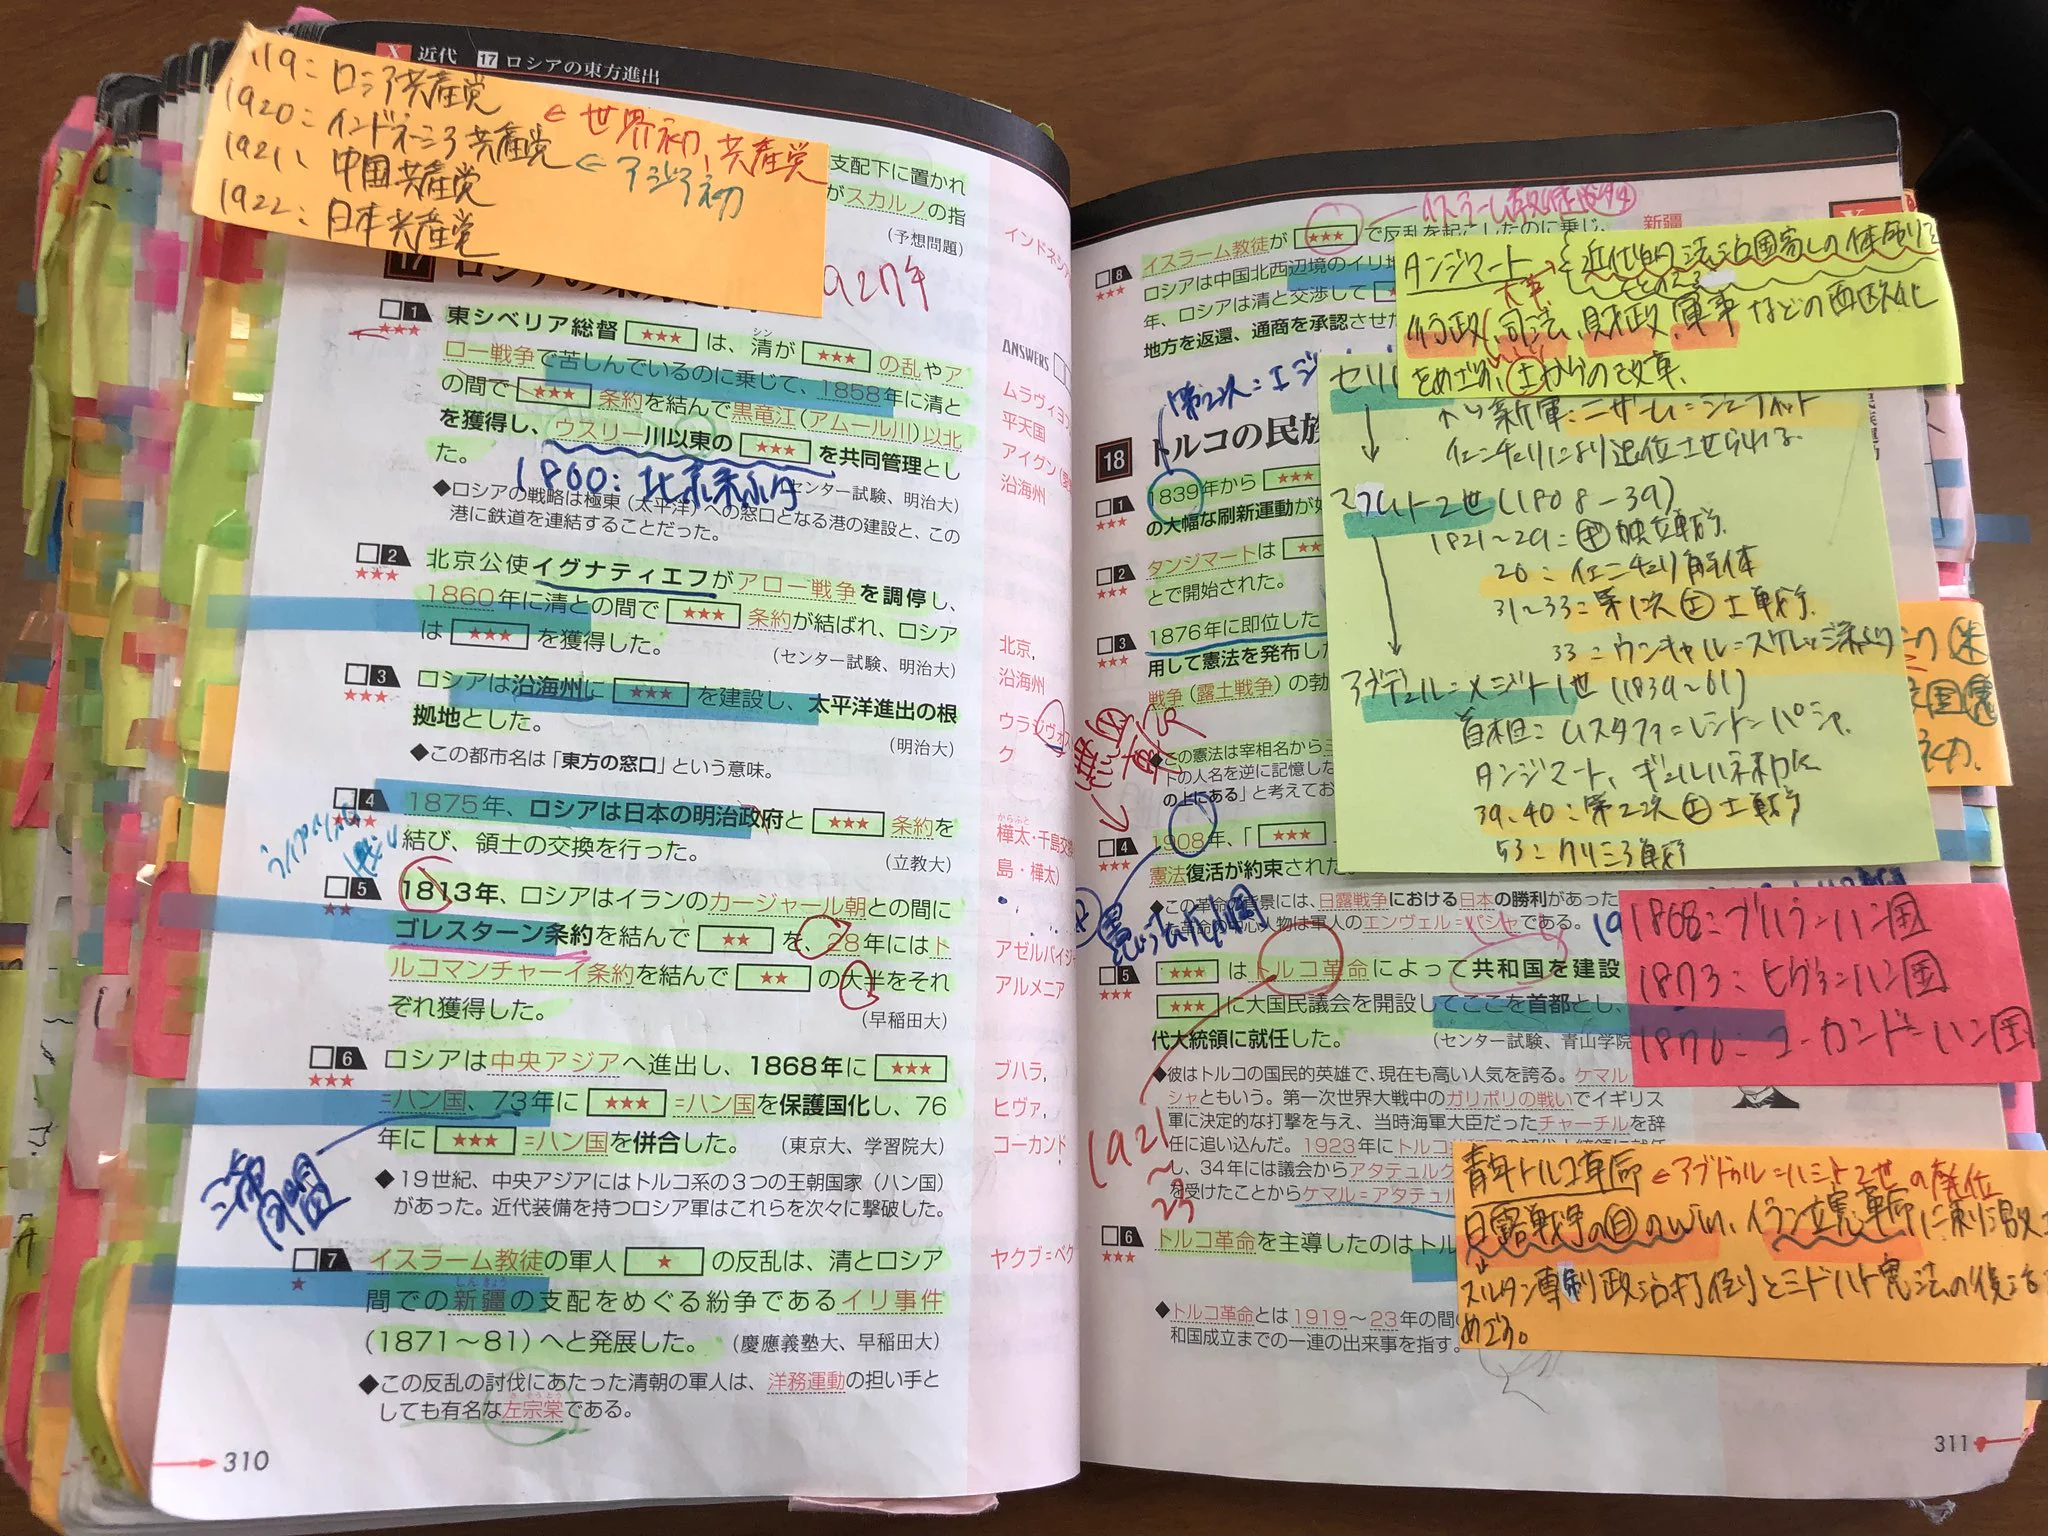 X 近代 17 ロシアの東方進出
119：ロシア共産党
1920：インドネシア共産党 ← 世界初、共産党
1921、中国共産党 ← アジア初
1922：日本共産党
支配下に置かれ
がスカルノの指
(予想問題)
インドネシア
1927年
17
ANSWERS
□1 東シベリア総督 ★★★ は、清が ★★★ の乱やア
★★★ ロー戦争で苦しんでいるのに乗じて、1858年に清と
の間で ★★★ 条約を結んで黒竜江(アムール川)以北
を獲得し、ウスリー川以東の ★★★ を共同管理とし
た。
(センター試験、明治大)
1860：北京条約
◆ロシアの戦略は極東(太平洋)への窓口となる港の建設と、この
港に鉄道を連結することだった。
ムラヴィヨフ
平天国
アイグン
沿海州
□2 北京公使イグナティエフがアロー戦争を調停し、
★★★ 1860年に清との間で ★★★ 条約が結ばれ、ロシア
は ★★★ を獲得した。
(センター試験、明治大)
北京,
沿海州
□3 ロシアは沿海州に ★★★ を建設し、太平洋進出の根
★★★ 拠地とした。
(明治大)
◆この都市名は「東方の窓口」という意味。
ウラジヴォス
ク
□4 1875年、ロシアは日本の明治政府と ★★★ 条約を
★★★ 結び、領土の交換を行った。
(立教大)
樺太・千島交換
島・樺太)
□5 1813年、ロシアはイランのカージャール朝との間に
★★ ゴレスターン条約を結んで ★★ を、28年にはト
ルコマンチャーイ条約を結んで ★★ の大半をそれ
ぞれ獲得した。
(早稲田大)
アゼルバイジャ
アルメニア
□6 ロシアは中央アジアへ進出し、1868年に ★★★
★★★ =ハン国、73年に ★★★ =ハン国を保護国化し、76
年に ★★★ =ハン国を併合した。
(東京大、学習院大)
◆19世紀、中央アジアにはトルコ系の3つの王朝国家(ハン国)
があった。近代装備を持つロシア軍はこれらを次々に撃破した。
ブハラ,
ヒヴァ,
コーカンド
□7 イスラーム教徒の軍人 ★ の反乱は、清とロシア
★ 間での新疆の支配をめぐる紛争であるイリ事件
(1871〜81)へと発展した。
(慶應義塾大、早稲田大)
◆この反乱の討伐にあたった清朝の軍人は、洋務運動の担い手と
しても有名な左宗棠である。
ヤクブ=ベク
310
□8 イスラーム教徒が ★★★ で反乱を起こしたのに乗じ、
ロシアは中国北西辺境のイリ地
年、ロシアは清と交渉して
地方を返還、通商を承認させた
新疆
タンジマート → 近代的法治国家しの体制を
ととのえる
行政、司法、財政、軍事などの西欧化
をめざす、上からの改革、
セリ
新軍：ニザーム=ジェディット
イェニチェリにより退位させられる
マフムト2世(1808-39)
1821〜29：独立戦争
26：イェニチェリ解体
31〜33：第1次 土戦争
33：ウンキャル=スケレッシ条約
アブデュル=メジト1世(1839〜61)
首相：ムスタファ=レシト=パシャ
タンジマート、ギュルハネ勅令
39、40：第2次 土戦争
53：クリミア戦争
18 トルコの民族
□1 1839年から ★★★
★★★ の大幅な刷新運動が
□2 タンジマートは
★★★ とで開始された。
□3 1876年に即位した
★★★ 用して憲法を発布した
戦争(露土戦争)の勃
◆この憲法は宰相名から
トの人名を逆に記憶した
の上にある」と考えてお
□4 1908年、「 ★★★
★★★ 憲法復活が約束された
◆この革命の背景には、日露戦争における日本の勝利があった
た革命の中心人物は軍人のエンヴェル=パシャである。
□5 ★★★ はトルコ革命によって共和国を建設
★★★ ★★★ に大国民議会を開設してここを首都とし、
代大統領に就任した。
(センター試験、青山学院
◆彼はトルコの国民的英雄で、現在も高い人気を誇る。ケマル
シャともいう。第一次世界大戦中のガリポリの戦いでイギリス
軍に決定的な打撃を与え、当時海軍大臣だったチャーチルを辞
任に追い込んだ。1923年にトルコ
し、34年には議会からアタテュルク
を受けたことからケマル=アタテュル
1921
〜
23
1868：ブハラ=ハン国
1873：ヒヴァ=ハン国
1876：コーカンド=ハン国
□6 トルコ革命を主導したのはトル
★★★
◆トルコ革命とは1919〜23年の間
和国成立までの一連の出来事を指す。
青年トルコ革命 ← アブドゥル=ハミト2世の廃位
日露戦争の日のwin、イラン立憲革命に刺激
スルタン専制政治打倒とミドハト憲法の復活
めざす。
311